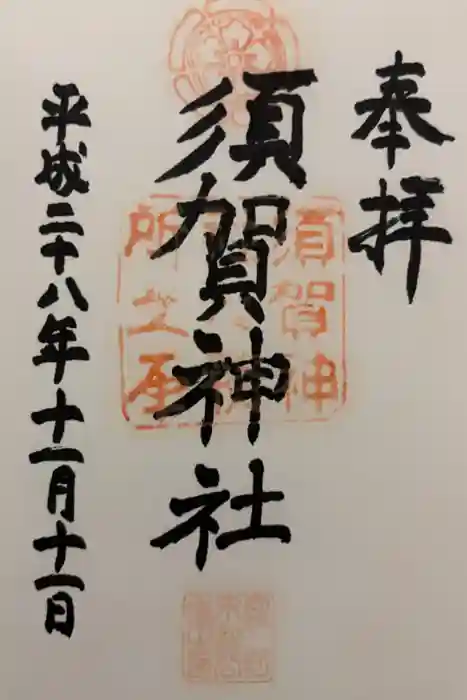 奉拝
須賀神社
平成二十八年十一月十一日
須賀神